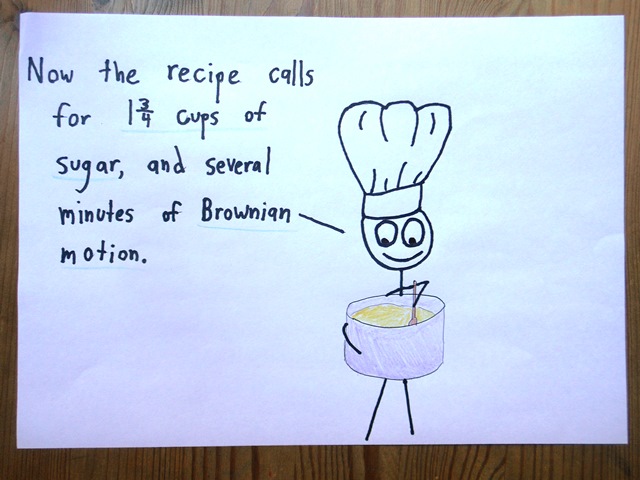 Now the recipe calls
for 1¾ cups of
sugar, and several
minutes of Brownian
motion.